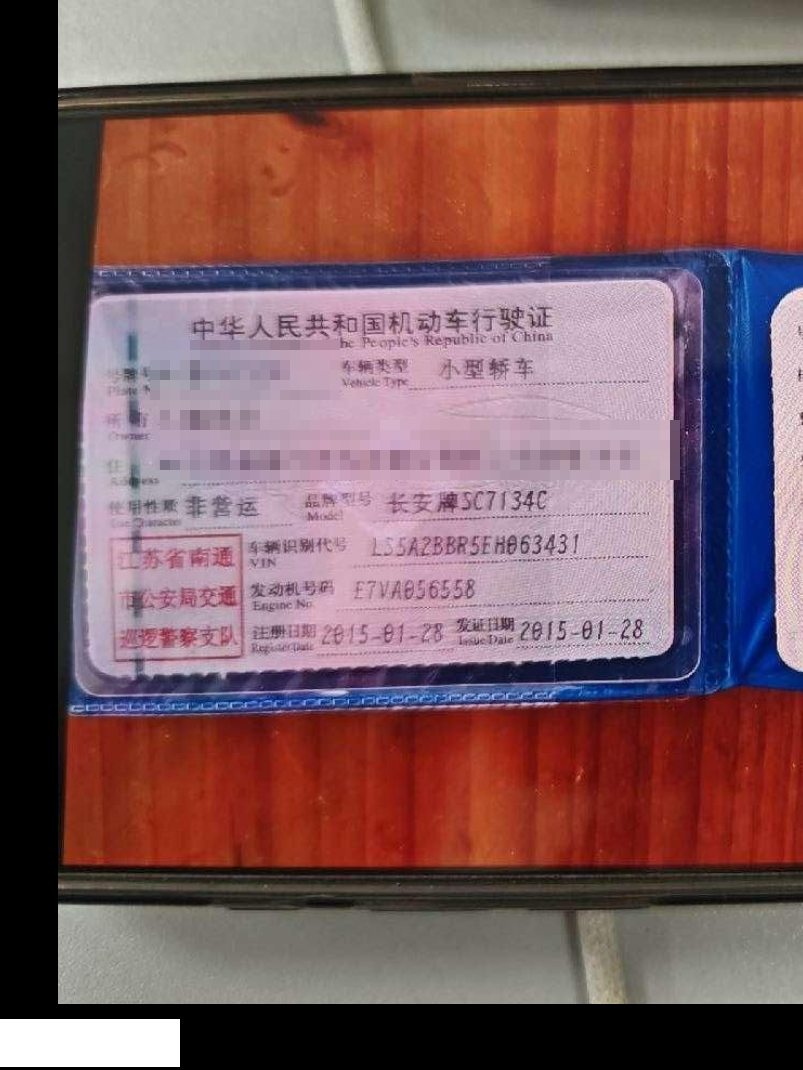 中华人民共和国机动车行驶证
he People's Republic of China
Plate N
车辆类型 小型轿车
Vehicle Type
所有
Owner
住
Address
使用性质 非营运 品牌型号 长安牌SC7134C
Use Character Model
江苏省南通
市公安局交通
巡逻警察支队
车辆识别代号 LS5A2BBR5EH063431
VIN
发动机号码 E7VA056558
Engine No.
注册日期 2015-01-28 发证日期 2015-01-28
Register Date Issue Date